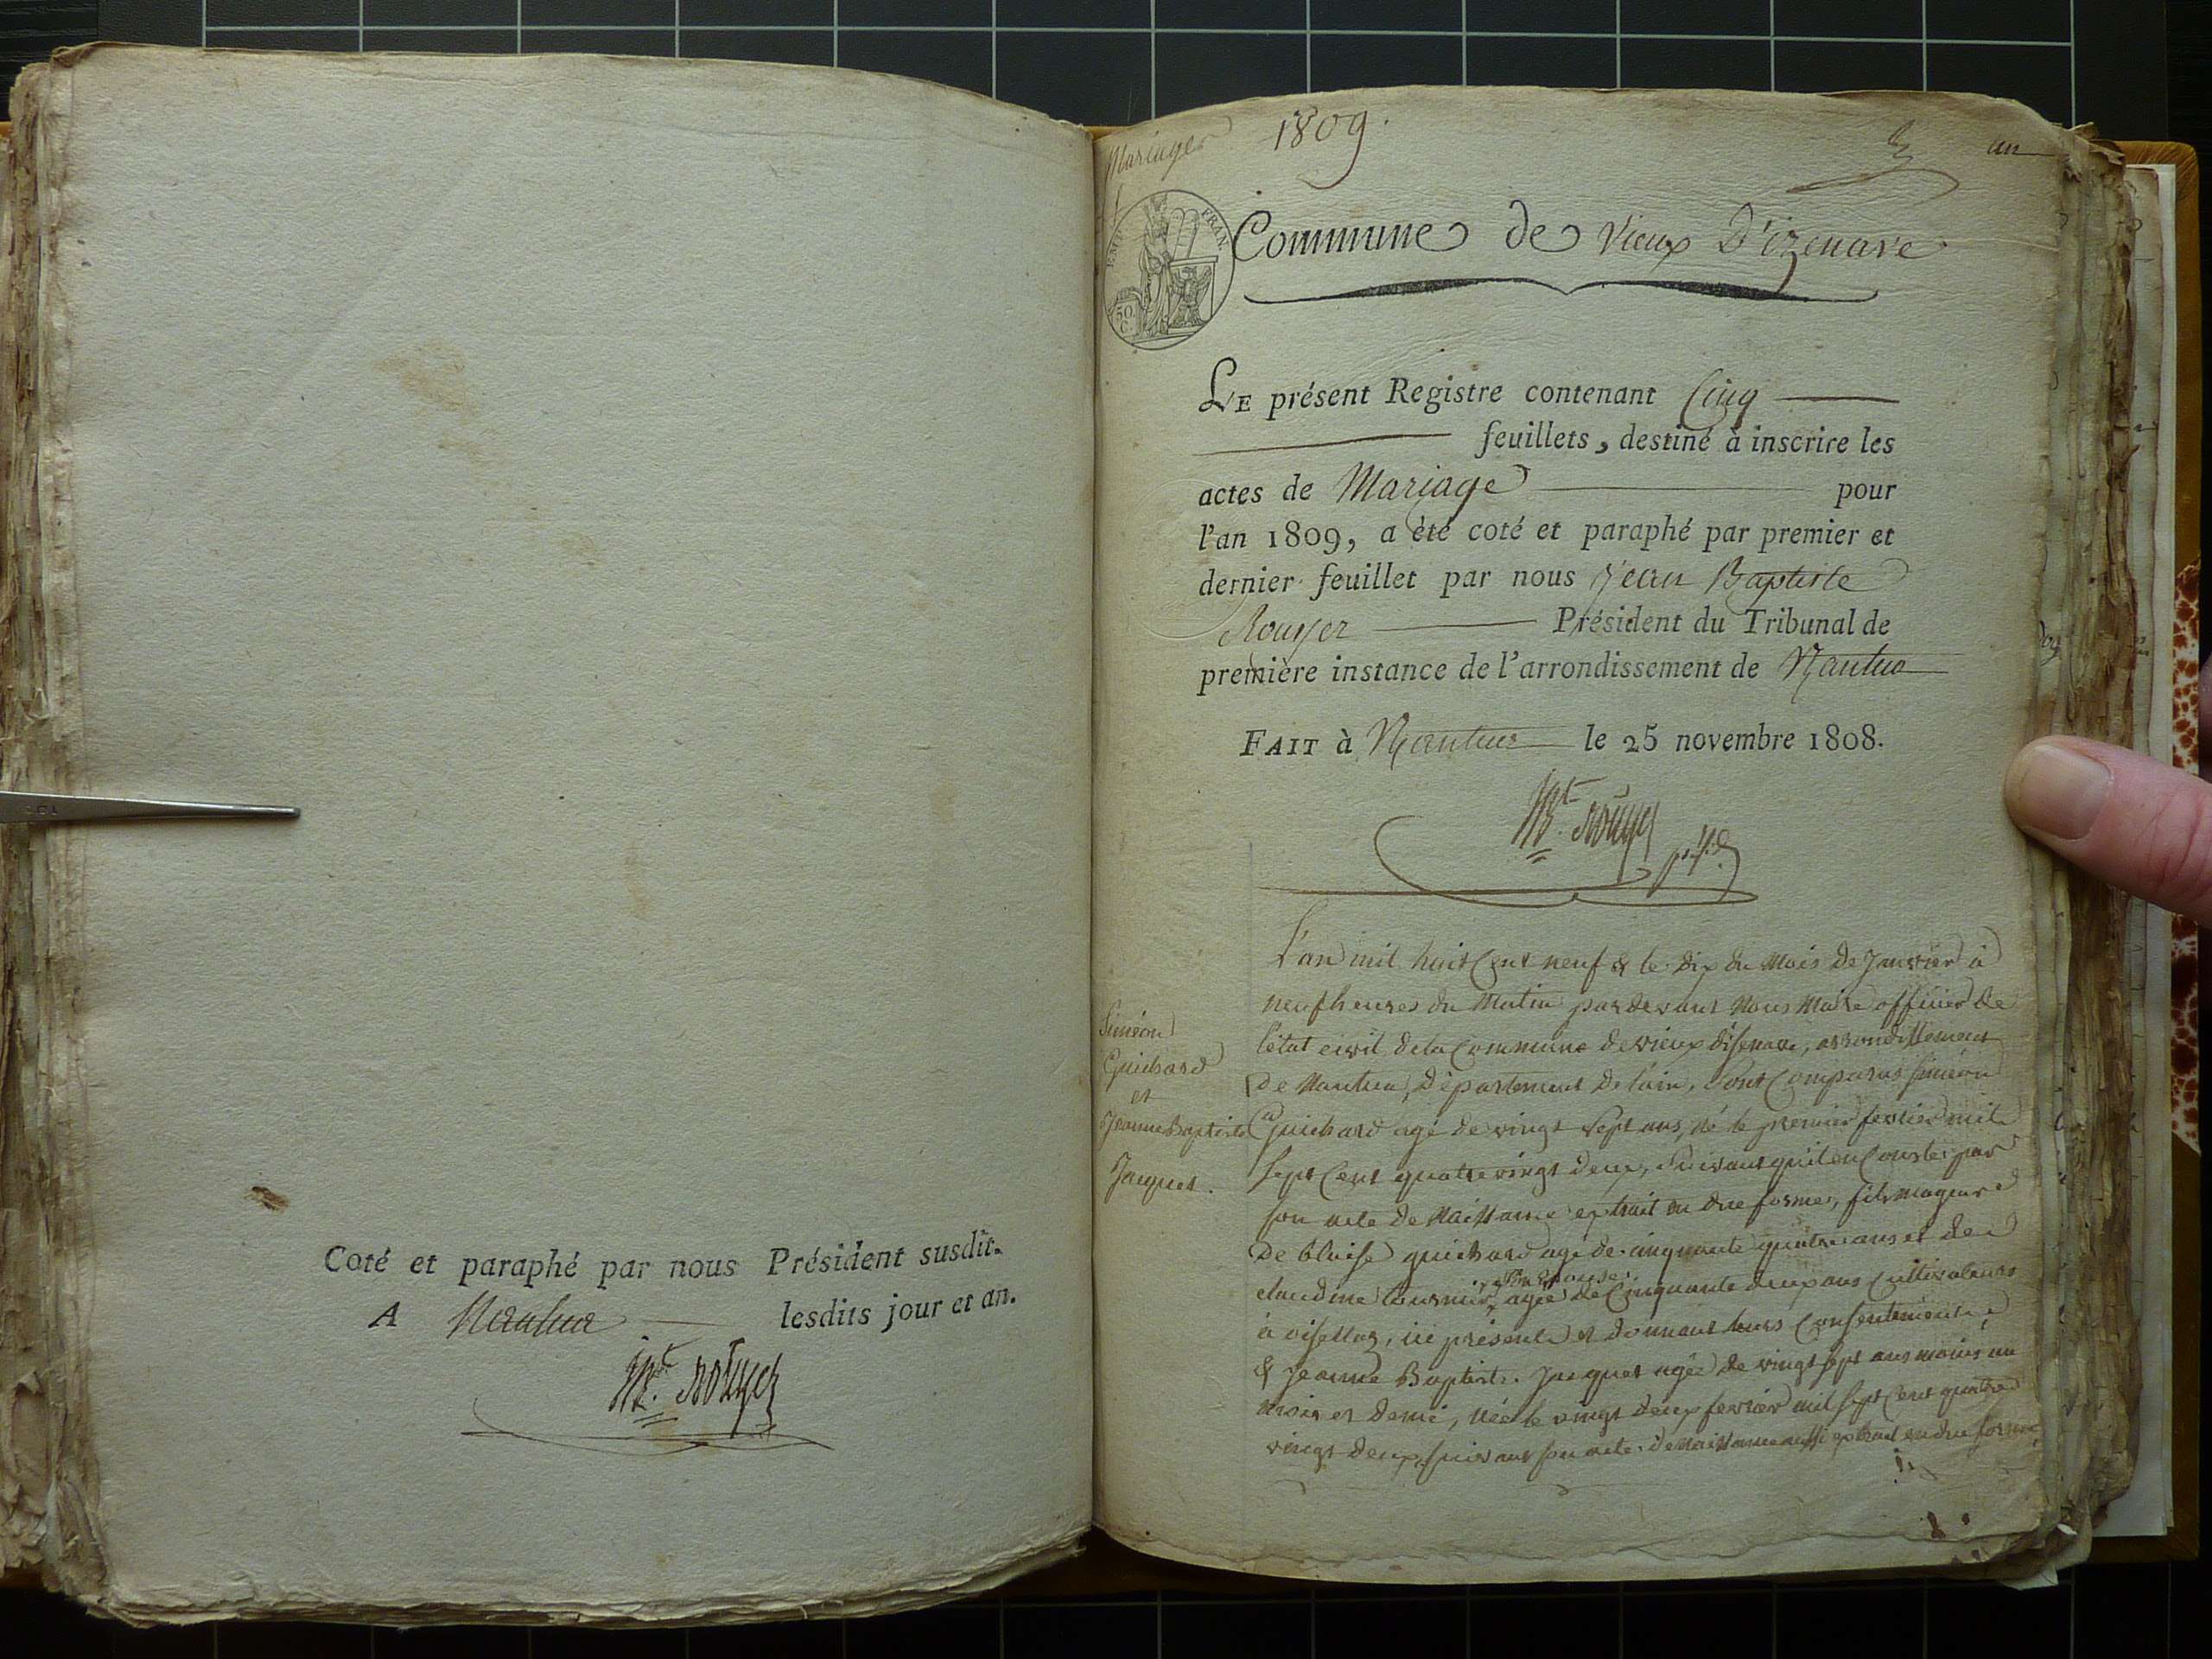 Coté et paraphé par nous Président susdit.
A Nantua lesdits jour et an.
JBt. Rouyer
Mariages 1809.
un
EMP. FRAN.
50.
C.
Commune de Vieux D'izenave
LE présent Registre contenant Cinq
feuillets, destiné à inscrire les
actes de Mariage pour
l'an 1809, a été coté et paraphé par premier et
dernier feuillet par nous Jean Baptiste
Rouyer Président du Tribunal de
première instance de l'arrondissement de Nantua
FAIT à Nantua le 25 novembre 1808.
JBt. Rouyer
présid.
Siméon
Guichard
et
Jeanne Baptiste
Jacquet.
L'an mil huit Cent neuf & le dix du Mois de Janvier à
neuf heures du Matin pardevant Nous Maire officier de
l'état civil de la Commune de vieux d'isenave, arrondissement
De Nantua, Département de l'ain, sont Comparus siméon
Guichard agé de vingt sept ans, né le premier fevrier mil
sept Cent quatre vingt deux, suivant qu'il en Conste par
son acte de Naissance extrait en due forme, fils mageur
De blaise guichard agé de cinquante quatre ans et de
claudine tournier, son Epouse, agée de Cinquante deux ans Cultivateurs
à oisellaz, ici présents et donnant leurs Consentements,
& Jeanne Baptiste Jacquet agée de vingt sept ans moins un
mois et demi, née le vingt deux fevrier mil sept Cent quatre
vingt deux, suivant son acte de Naissance aussi extrait en due forme